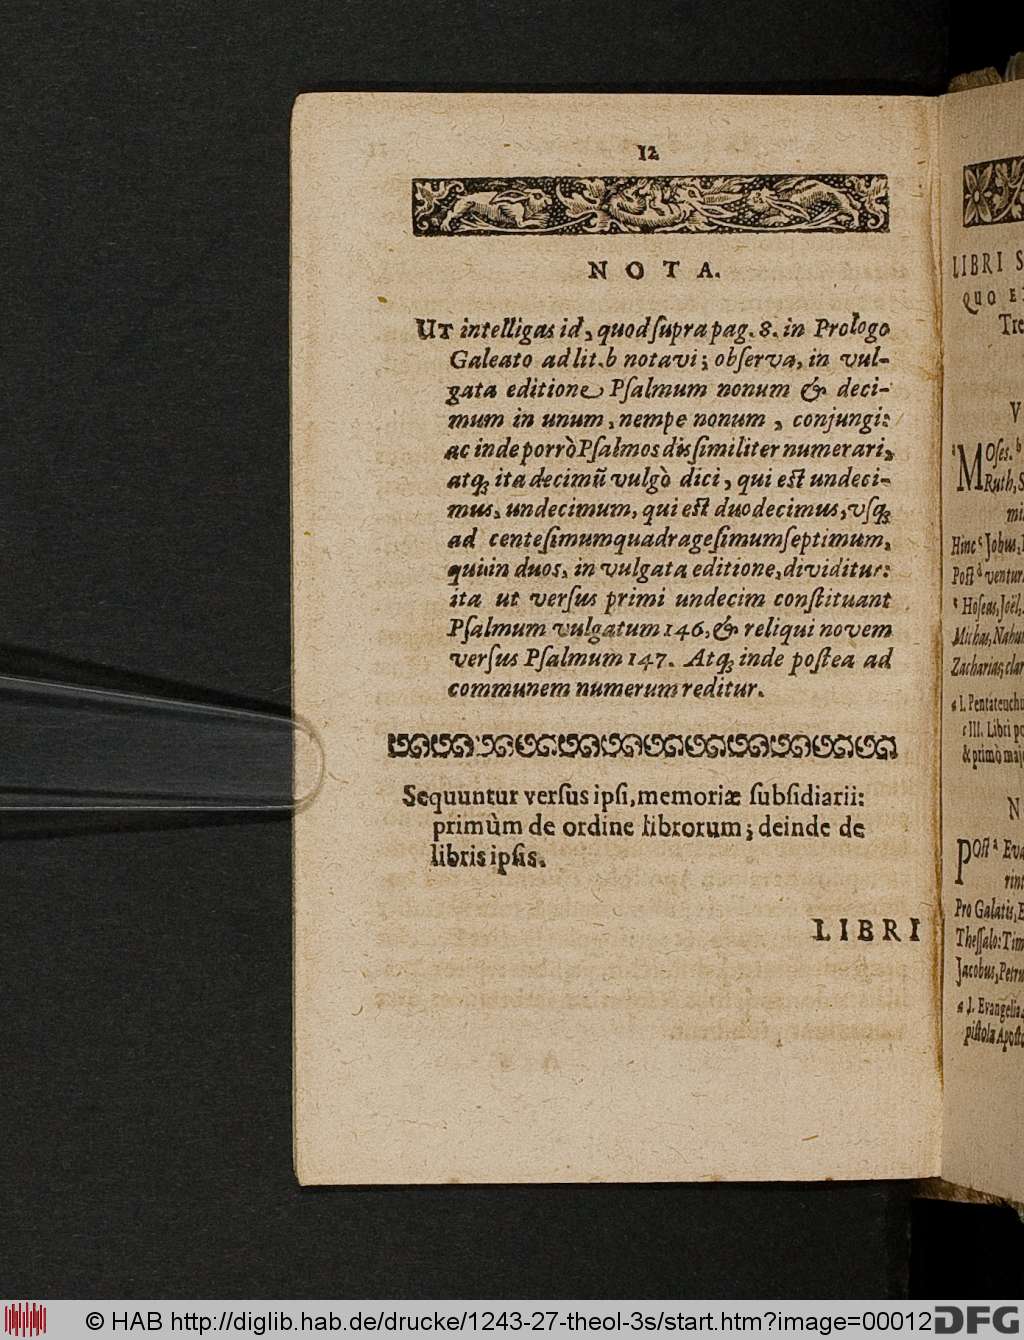 12
NOTA.
UT intelligas id, quod ſupra pag. 8. in Prologo
Galeato ad lit. b notavi; obſerva, in vul-
gata editione Pſalmum nonum & deci-
mum in unum, nempe nonum, conjungi:
ac inde porrò Pſalmos diſſimiliter numerari,
atq; ita decimũ vulgò dici, qui eſt undeci-
mus, undecimum, qui eſt duodecimus, uſq;
ad centeſimumquadrageſimumſeptimum,
qui in duos, in vulgata editione, dividitur:
ita ut verſus primi undecim conſtituant
Pſalmum vulgatum 146, & reliqui novem
verſus Pſalmum 147. Atq; inde poſtea ad
communem numerum reditur.
Sequuntur verſus ipſi, memoriæ ſubſidiarii:
primùm de ordine librorum; deinde de
libris ipſis.
LIBRI
LIBRI S
QUO E
Tre
V
Moſes. b
Ruth, S
mi
Hinc c Jobus,
Poſt d ventur
e Hoſeas, Joël,
Michas, Nahu
Zacharias; clar
a I. Pentateuchu
c III. Libri po
& primò maj
N
Poſt a Eva
rint
Pro Galatis, E
Theſſalo: Tim
Jacobus, Petru
a I. Evangelia
piſtolæ Apoſto
© HAB http://diglib.hab.de/drucke/1243-27-theol-3s/start.htm?image=00012
DFG